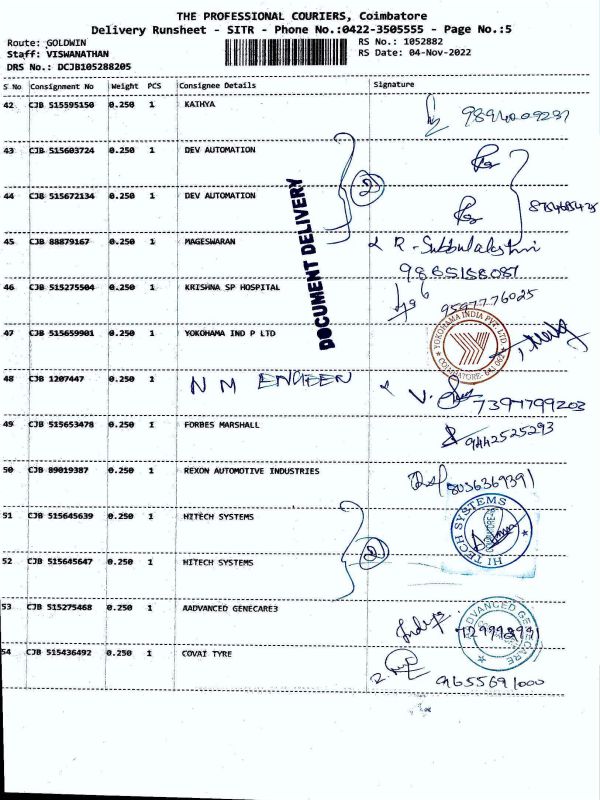 THE PROFESSIONAL COURIERS, Coimbatore
Delivery Runsheet - SITR - Phone No.:0422-3505555 - Page No.:5
Route: GOLDWIN RS No.: 1052882
Staff: VISWANATHAN RS Date: 04-Nov-2022
DRS No.: DCJB105288205
S No Consignment No Weight PCS Consignee Details Signature
42 CJB 515595150 0.250 1 KATHYA
43 CJB 515603724 0.250 1 DEV AUTOMATION
2
44 CJB 515672134 0.250 1 DEV AUTOMATION
DOCUMENT DELIVERY
45 CJB 88879167 0.250 1 MAGESWARAN R-Subbulakshmi
9865158081
46 CJB 515275504 0.250 1 KRISHNA SP HOSPITAL 9597776025
47 CJB 515659901 0.250 1 YOKOHAMA IND P LTD YOKOHAMA INDIA PVT LTD
48 CJB 1207447 0.250 1 N M ENGEEN V. 7397799203
49 CJB 515653478 0.250 1 FORBES MARSHALL 9442525293
50 CJB 89019387 0.250 1 REXON AUTOMOTIVE INDUSTRIES 8036369391
51 CJB 515645639 0.250 1 HITECH SYSTEMS HI TECH SYSTEMS
2
52 CJB 515645647 0.250 1 HITECH SYSTEMS
53 CJB 515275468 0.250 1 AADVANCED GENECARE3 ADVANCED GENECARE
54 CJB 515436492 0.250 1 COVAI TYRE 9655691000